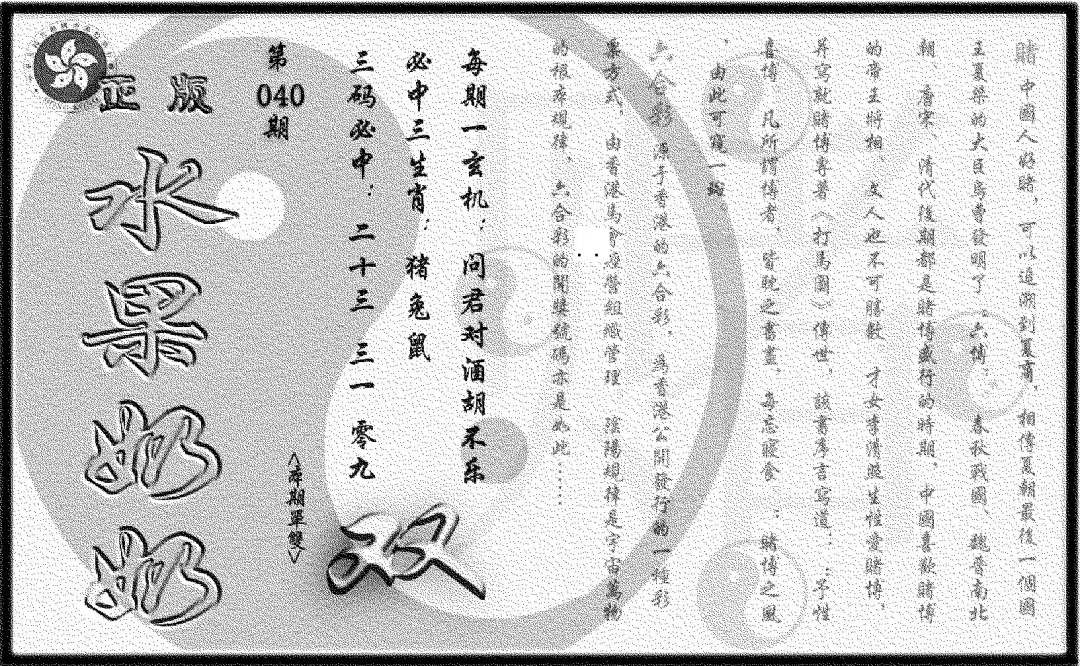 正版
水果奶奶
第
040
期
每期一玄机:问君对酒胡不乐
必中三生肖:猪兔鼠
三码必中:二十三 三一 零九
<本期單雙>
双
賭中國人好賭,可以追溯到夏商,相傳夏朝最後一個國
王夏桀的大臣烏曹發明了“六博”。春秋戰國、魏晉南北
朝、唐宋、清代後期都是賭博盛行的時期,中國喜歡賭博
的帝王將相、文人也不可勝數,才女李清照生性愛賭博,
并寫就賭博專著《打馬圖》傳世,該書序言寫道:“予性
喜博,凡所謂博者,皆耽之晝晝,每忘寢食”;賭博之風
,由此可窺一斑。
六合彩,源于香港的六合彩,為香港公開發行的一種彩
票方式,由香港馬會經營組織管理,陰陽規律是宇宙萬物
的根本規律,六合彩的開獎號碼亦是如此……